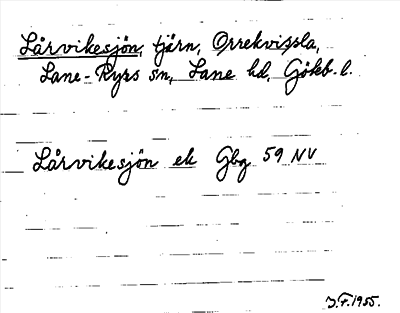 Lårvikesjön, tjärn, Orrekvissla,
Lane-Ryrs sn, Lane hd, Göteb. l.
Lårvikesjön ek Gbg 59 NV
J.F. 1955.